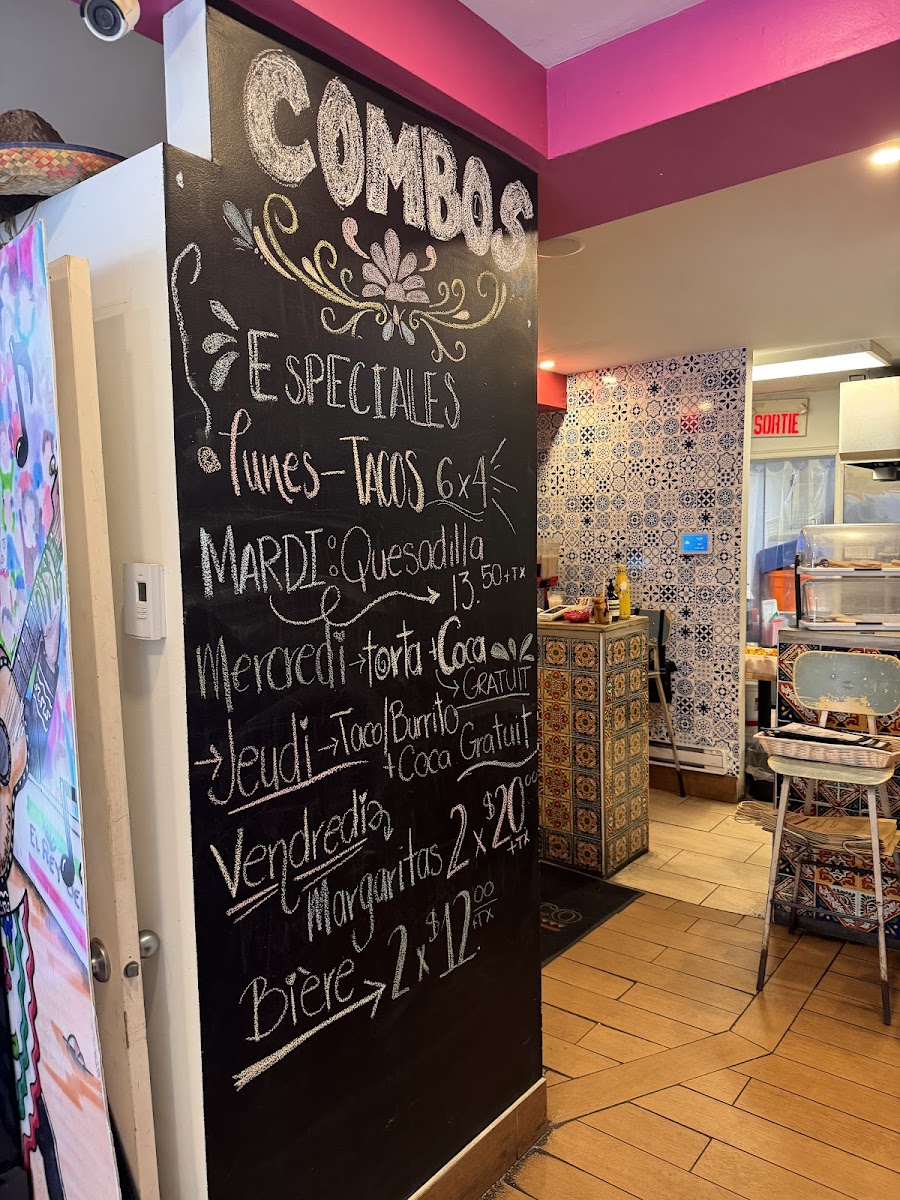 COMBOS
ESPECIALES
Lunes - TACOS 6x4
MARDI: Quesadilla
13.50+TX
Mercredi → torta + Coca
→ GRATUIT
→ Jeudi → Taco/Burrito
+ Coca Gratuit
Vendredi
Margaritas 2x$20.00
+TX
Bière → 2x$12.00
+TX
SORTIE